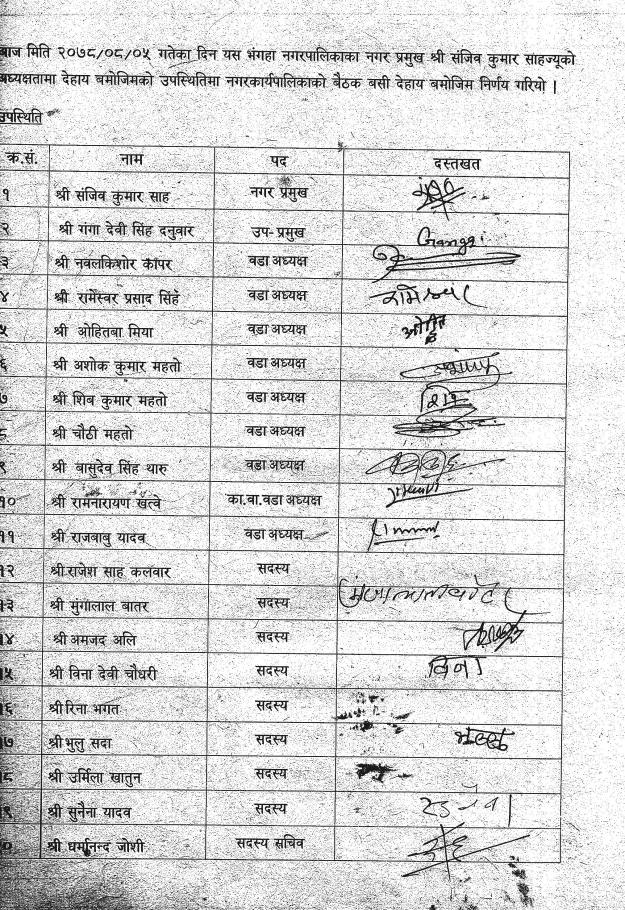 आज मिति २०७८/०८/०५ गतेका दिन यस भंगहा नगरपालिकाका नगर प्रमुख श्री संजिव कुमार साहज्यूको
अध्यक्षतामा देहाय बमोजिमको उपस्थितिमा नगरकार्यपालिकाको बैठक बसी देहाय बमोजिम निर्णय गरियो |
उपस्थिति
क्र.सं. नाम पद दस्तखत
१ श्री संजिव कुमार साह नगर प्रमुख
२ श्री गंगा देवी सिंह दनुवार उप- प्रमुख Ganga
३ श्री नवलकिशोर कापर वडा अध्यक्ष
४ श्री रामेस्वर प्रसाद सिंह वडा अध्यक्ष
५ श्री ओहितबा मिया वडा अध्यक्ष
६ श्री अशोक कुमार महतो वडा अध्यक्ष
७ श्री शिब कुमार महतो वडा अध्यक्ष
८ श्री चौठी महतो वडा अध्यक्ष
९ श्री बासुदेव सिंह थारु वडा अध्यक्ष
१० श्री रामनारायण खत्वे का.वा.वडा अध्यक्ष
११ श्री राजबाबु यादव वडा अध्यक्ष
१२ श्री राजेश साह कलवार सदस्य
१३ श्री मुंगालाल बातर सदस्य
१४ श्री अमजद अलि सदस्य
१५ श्री विना देवी चौधरी सदस्य विना
१६ श्री रिना भगत सदस्य
१७ श्री भुलु सदा सदस्य
१८ श्री उर्मिला खातुन सदस्य
१९ श्री सुनैना यादव सदस्य
२० श्री धर्मानन्द जोशी सदस्य सचिव